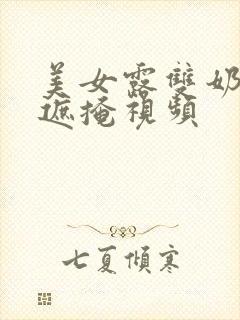 美女露雙奶
遮掩視頻
七夏傾寒